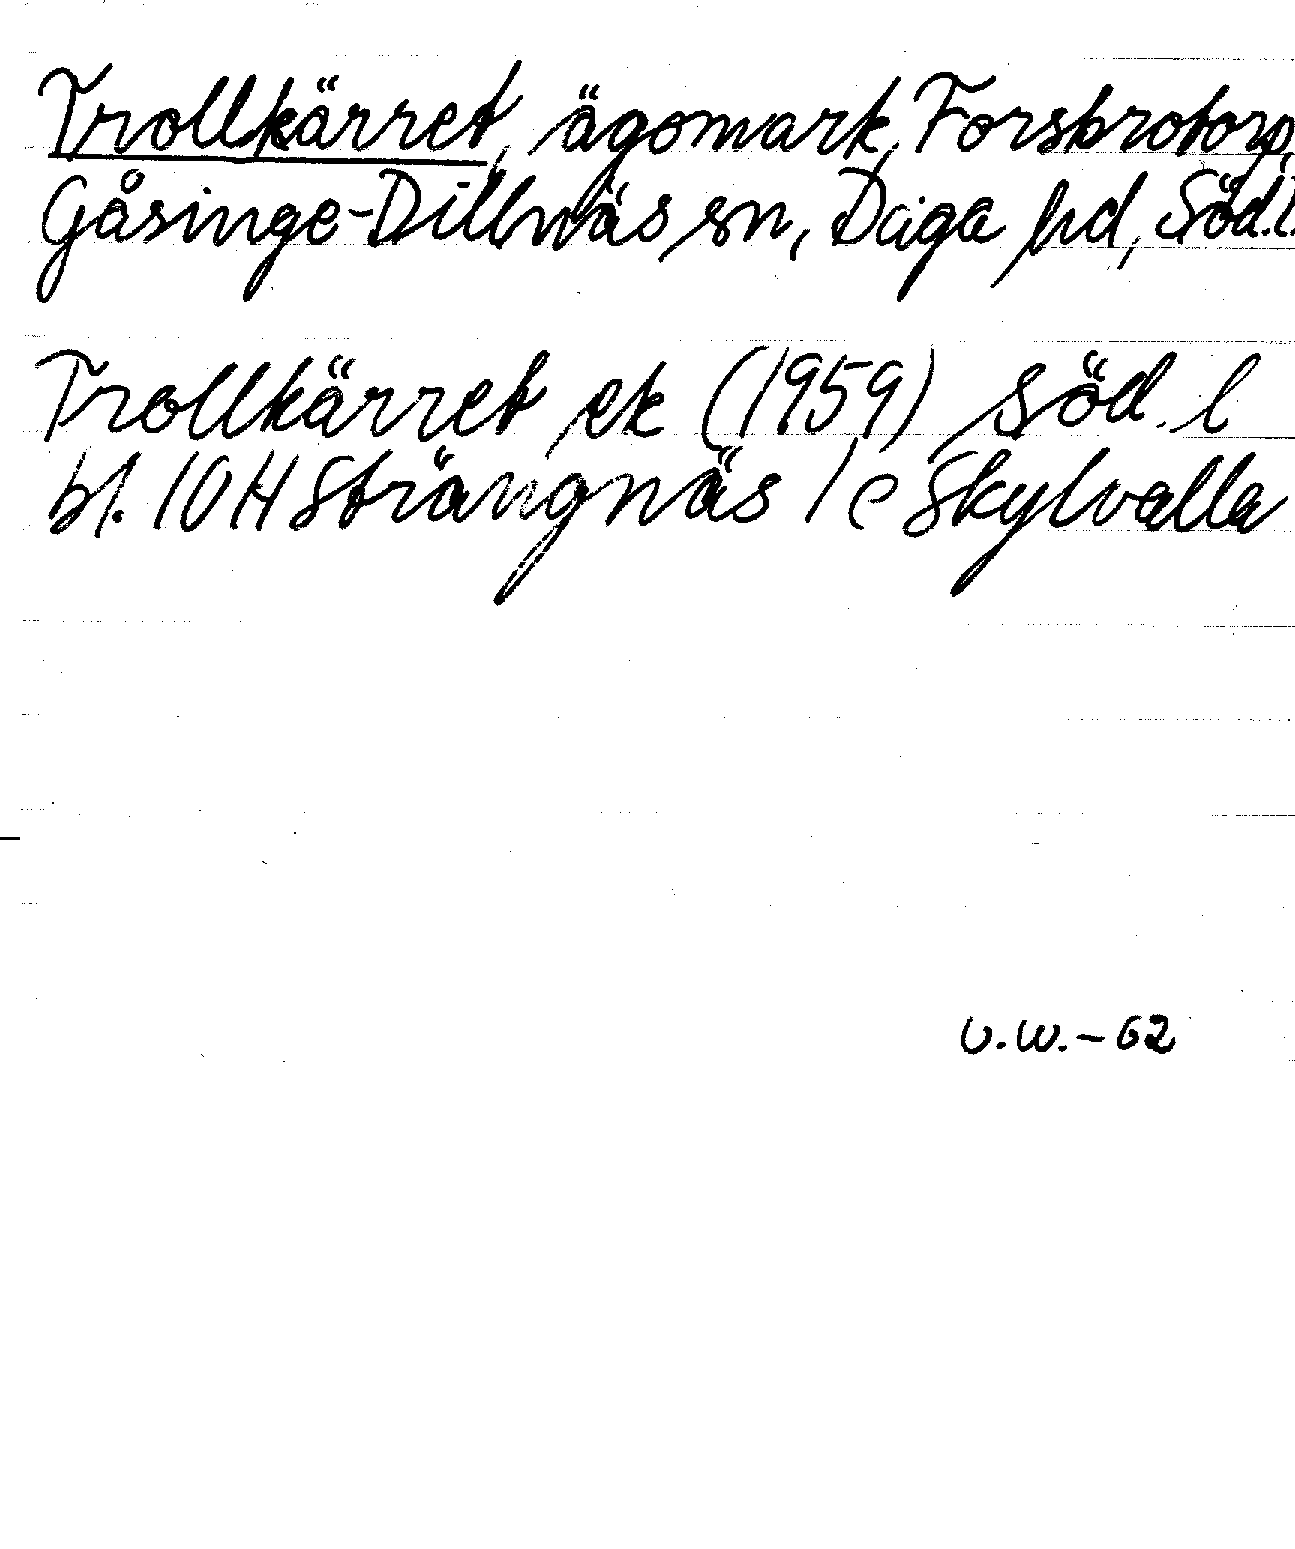 Trollkärret, ägomark, Forsbrotorp,
Gåsinge-Dillnäs sn, Daga hd, Söd.l.
Trollkärret ek (1959) Söd. l
bl. 10H Strängnäs 1e Skylvalla
U.W.-62